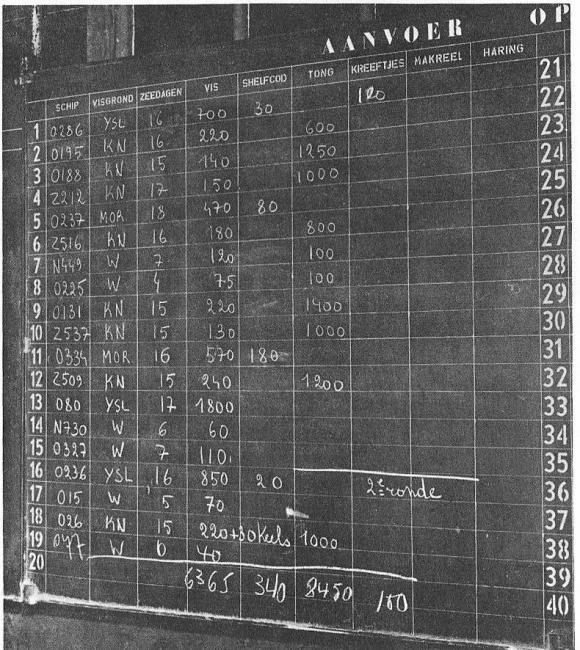 AANVOER OP
SCHIP VISGROND ZEEDAGEN VIS SHELFCOD TONG KREEFTJES MAKREEL HARING 21
1 0286 YSL 16 700 30 120 22
2 0195 KN 16 220 600 23
3 0188 KN 15 140 1250 24
4 Z212 KN 17 150 1000 25
5 0237 MOR 18 470 80 26
6 Z516 KN 16 180 800 27
7 N449 W 7 120 100 28
8 0225 W 4 75 100 29
9 0131 KN 15 220 1400 30
10 Z537 KN 15 130 1000 31
11 0334 MOR 16 570 180
12 Z509 KN 15 240 1200 32
13 080 YSL 17 1800 33
14 N730 W 6 60 34
15 0327 W 7 110 35
16 0236 YSL 16 850 20 2e ronde 36
17 015 W 5 70 37
18 026 KN 15 220+30 1000 38
19 W 6 40 39
20 6365 340 8450 40